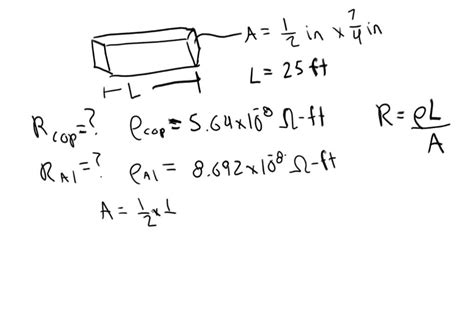 A = 1/2 in x 7/4 in
L = 25 ft
L
R cop = ? ρ cop = 5.64x10^-8 Ω-ft
R = ρL/A
R Al = ? ρ Al = 8.692x10^-8 Ω-ft
A = 1/2 x 1